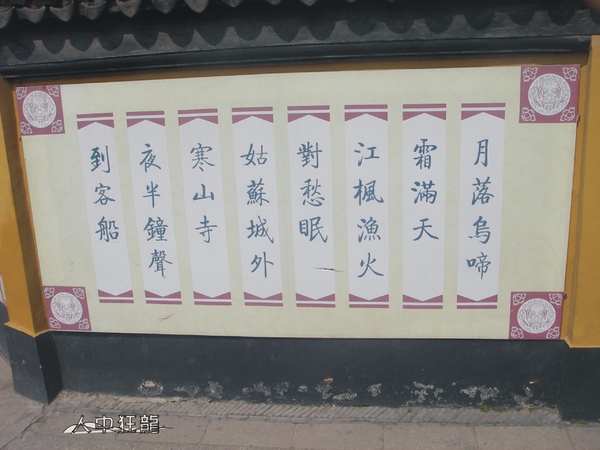 月落烏啼
霜滿天
江楓漁火
對愁眠
姑蘇城外
寒山寺
夜半鐘聲
到客船
人中狂龍